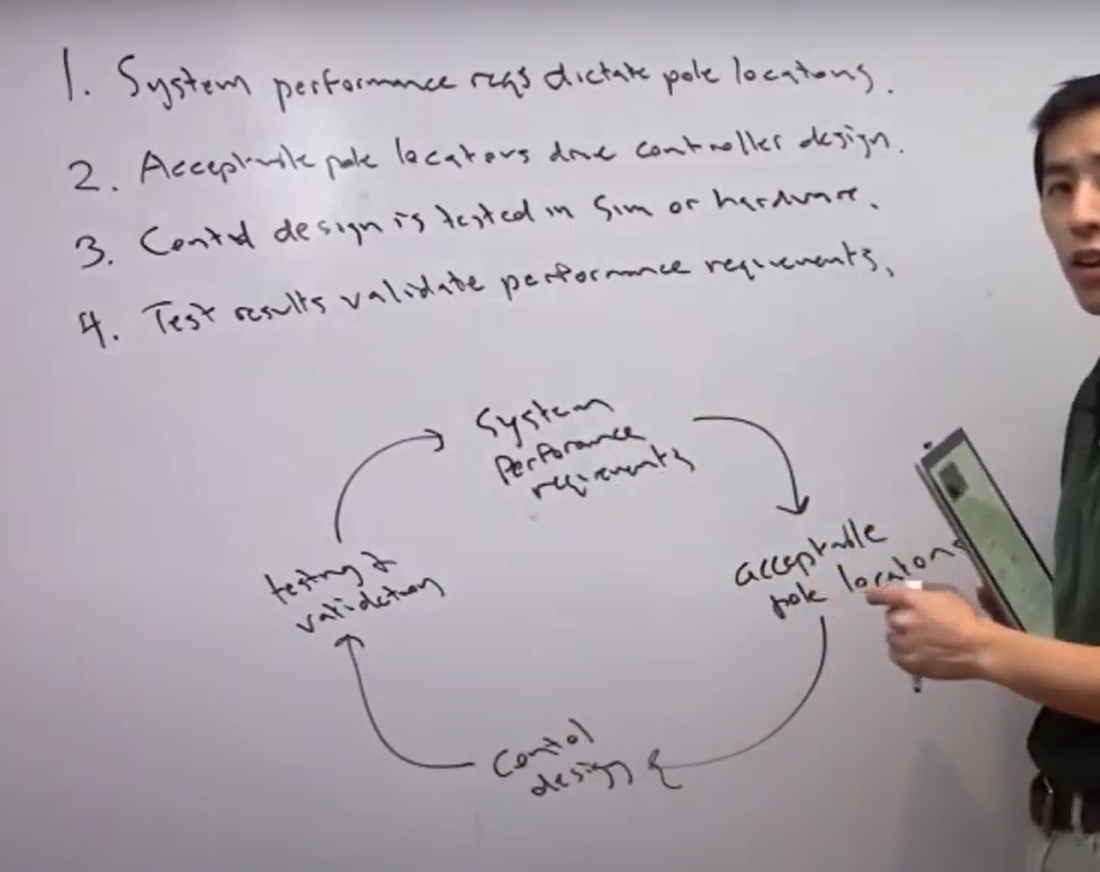 1. System performance reqs dictate pole locations.
2. Acceptable pole locators drive controller design.
3. Contol design is tested in sim or hardware.
4. Test results validate performance requirements.
System
Perforance
requirements
acceptable
pole locatons
Contol
design
testing &
validation